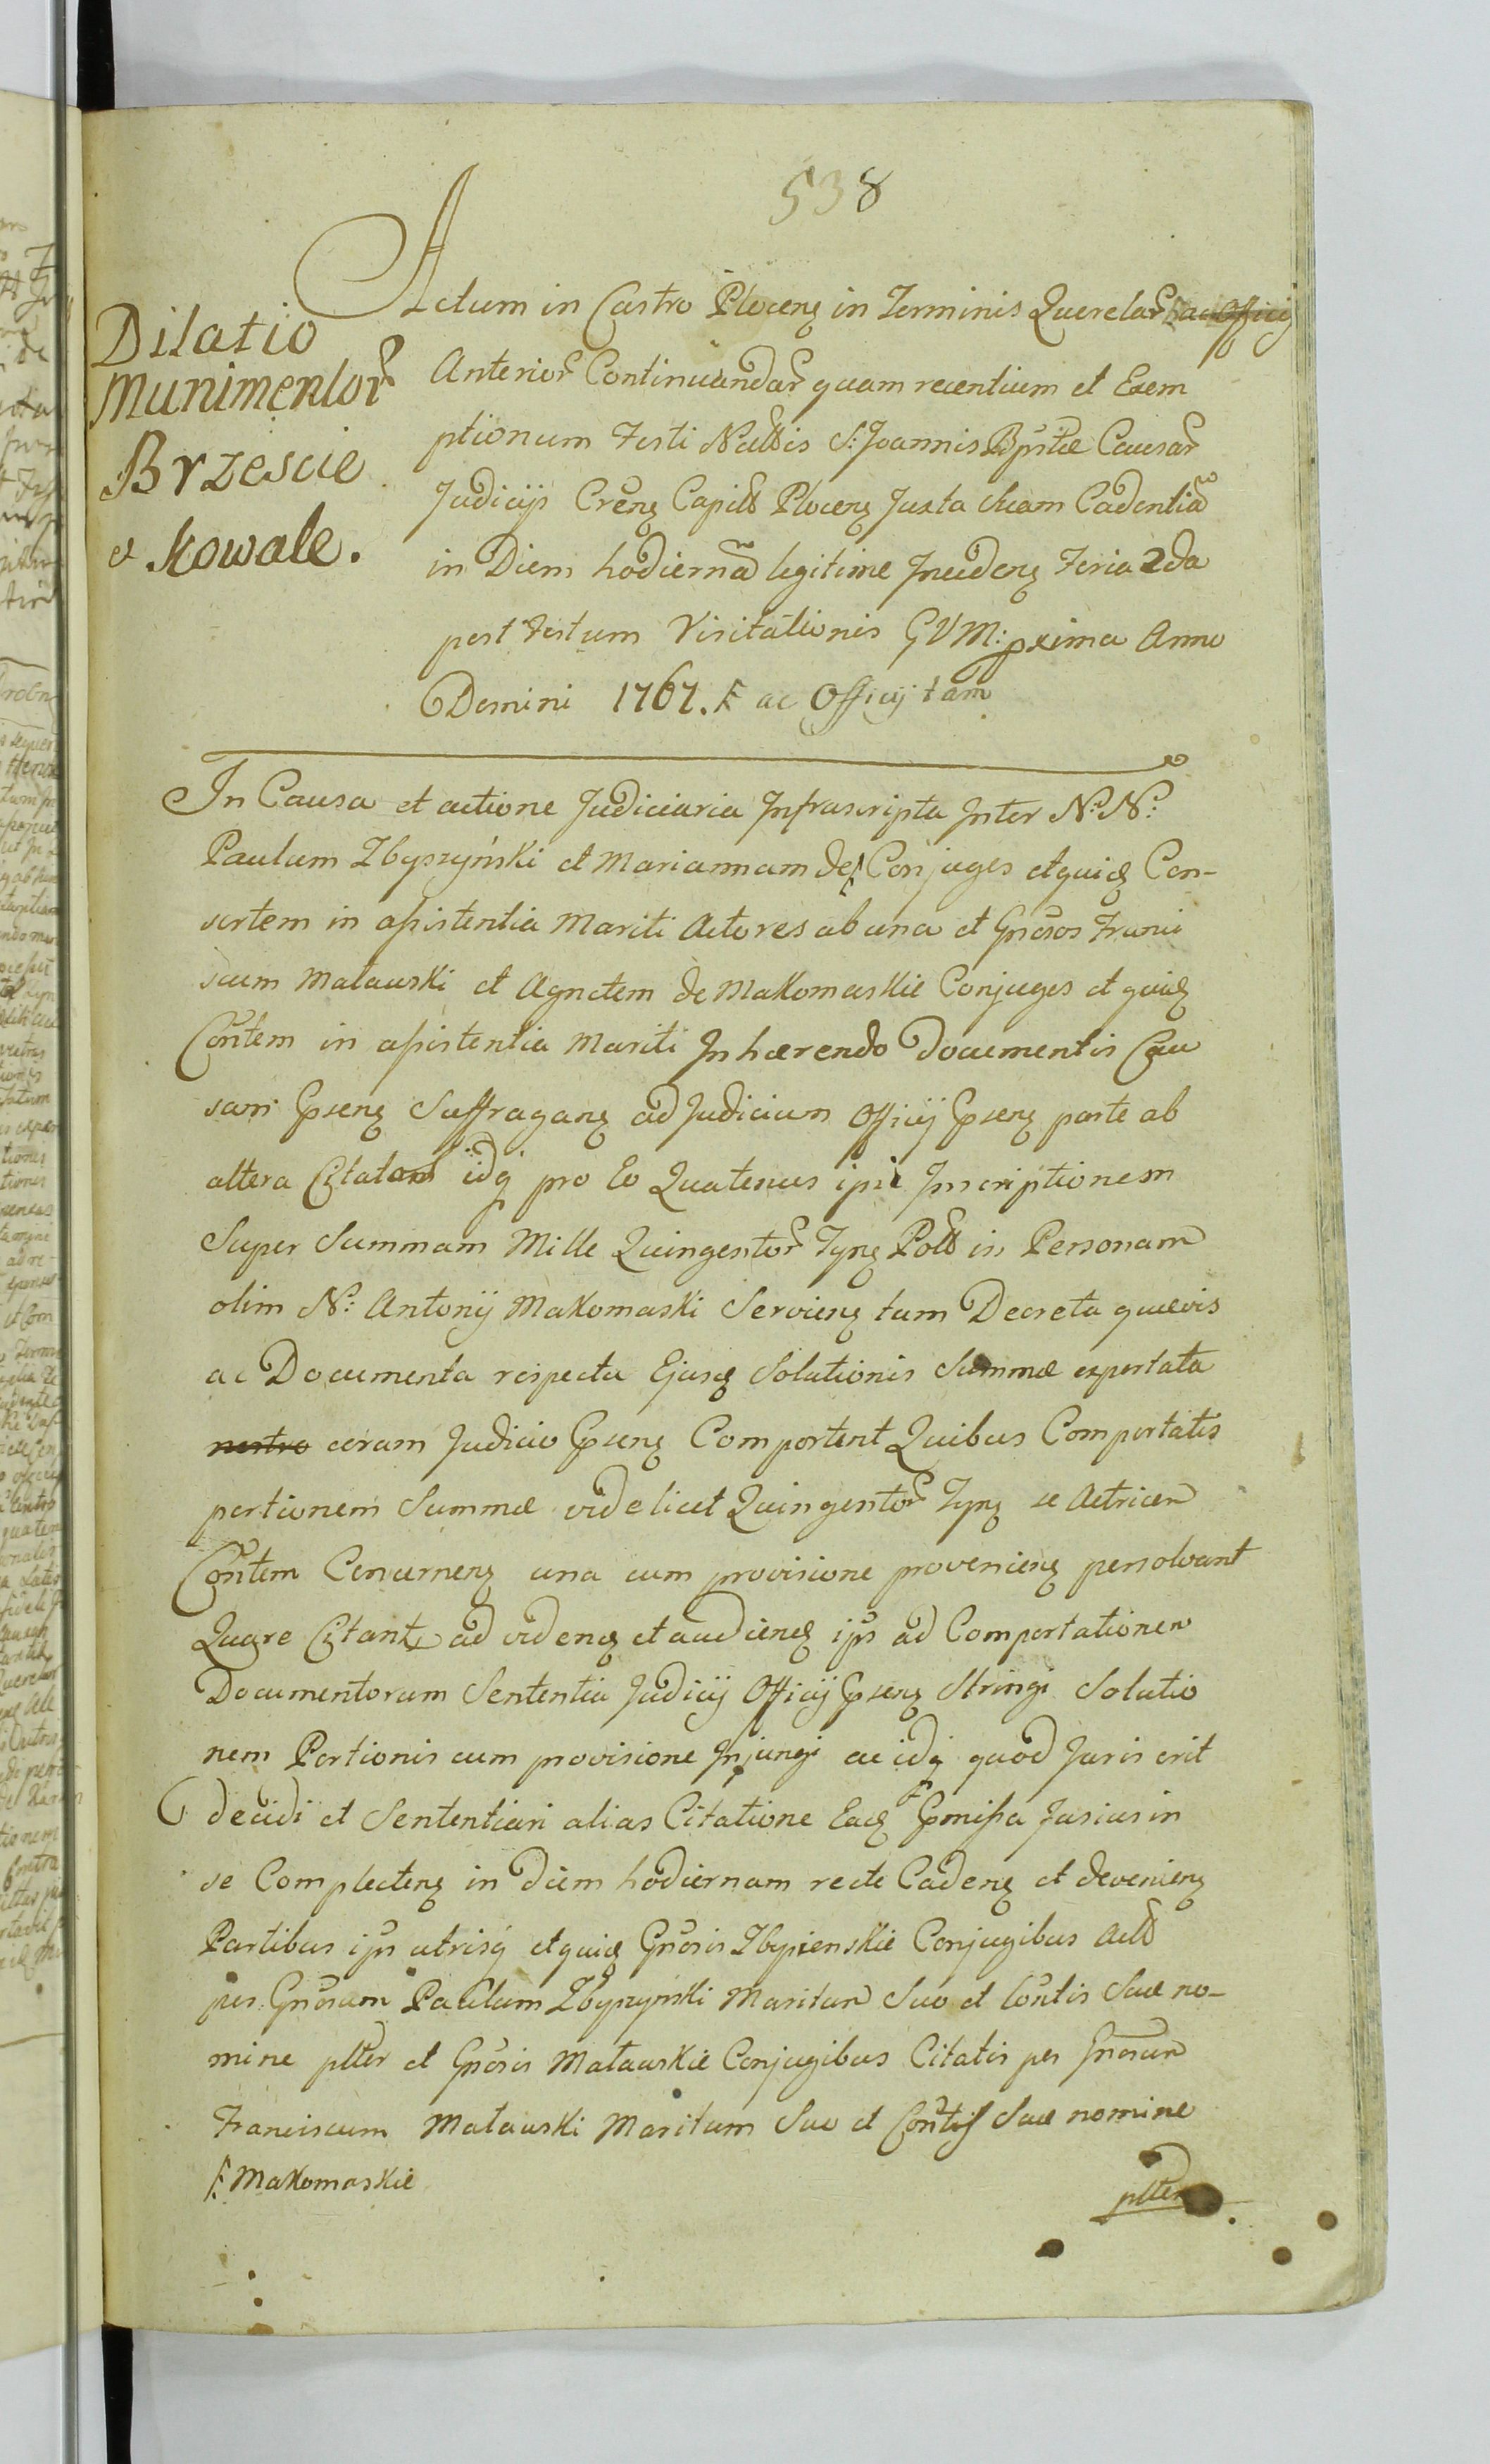 538
Actum in Castro Plocenꝫ in Terminis Querelar̃ ac Officij
Dilatio
Munimentor̃
Brzescie
et Kowale.
Anterior̃ Continuandar̃ quam recentium et Exem
ptionum Festi Nattis S: Joannis Bp̃stæ Causar̃
Judicijs Cr̃enꝫ Capitt Plocenꝫ Juxta suam Cadentiã
in Diem hodiernã legitime Incidenꝫ Feria 2da
post Festum Visitationis GVM: pxima Anno
Domini 1767. ac Officij tam
In Causa et actione Judiciaria Infrascripta Inter N: N:
Paulum Zbyszyński et Mariannam de Conjuges et quidꝫ Con-
sortem in assistentia Mariti Actores ab una et Gñosos Franci
scum Mataws̃ki et Agnetem de Makomaskie Conjuges et quidꝫ
Cõntem in assistentia Mariti Inhærendo Documentis Cau
sam p̃senꝫ Suffraganꝫ ad Judicium Officij p̃senꝫ parte ab
altera Citatos idq́ pro Eo Quatenus ipsi Inscriptionem
Super Summam Mille Quingentor̃ Tynꝫ Poll in Personam
olim N: Antonij Makomaski Servienꝫ tum Decreta quævis
ac Documenta respectu Ejusdꝫ Solutionis Summæ exportata
nostro coram Judicio p̃senꝫ Comportent Quibus Comportatis
portionem Summæ videlicet Quingentor̃ Tynꝫ se Actricem
Cõntem Concernenꝫ una cum provisione provenienꝫ persolvant
Quare Citantꝫ ad videndꝫ et audiendꝫ ip̃s ad Comportationem
Documentorum Sententia Judicij Officij p̃senꝫ Stringi Solutio
nem Portionis cum provisione Injungi ac idq́ quod Juris erit
decidi et Sententiari alias Citatione Eadꝫ p̃missa Fusius in
se Complectenꝫ in Diem hodiernam recte Cadenꝫ et devenienꝫ
Partibus ip̃s utrisq́ et quidꝫ Gñosis Zbyszenskie Conjugibus Actt
per Gñosum Paulum Zbyszynski Maritum Suo et Cõntis Suæ no-
mine pltter et Gñosis Matawskie Conjugibus Citatis per Gñosum
Franciscum Matawski Maritum Suo et Cõntis Suæ nomine
Makomaskie
pltter